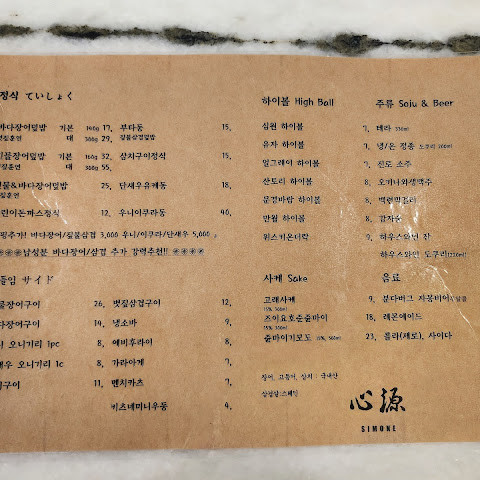 정식 ていしょく
바다장어덮밥 기본 140g 17,
대 280g 29,
민물장어덮밥 기본 160g 32,
대 360g 55,
민물&바다장어덮밥 18,
어린이돈까스정식 12,
부타동 15,
짚불삼겹덮밥
삼치구이정식 15,
단새우유케동 18,
우니이쿠라동 40,
바다장어/짚불삼겹 3,000 우니/이쿠라/단새우 5,000
남성분 바다장어/삼겹 추가 강력추천!!
사이드
장어구이 26,
바다장어구이 14,
오니기리 1pc 8,
오니기리 1c 8,
구이 11,
볏짚삼겹구이 12,
냉소바 9,
에비후라이 8,
가라아게 7,
멘치카츠 7,
미니우동 4,
하이볼 High Ball
심원 하이볼 9,
유자 하이볼 7,
얼그레이 하이볼 7,
산토리 하이볼 8,
문경바람 하이볼 8,
만월 하이볼 8,
위스키온더락 9,
사케 Sake
고래사케 9,
15% 300ml
즈이요호준줄바이 18,
15% 300ml
줄바이기모토 15% 300ml 23,
장어, 고등어, 삼치 : 국내산
삼겹살:스페인
주류 Soju & Beer
테라 330ml
냉/온 정종 도쿠리 200ml
진로 소주
오키나와생맥주
백련막걸리
감자술
하우스와인 잔
하우스와인 도쿠리(220ml)
음료
분다버그 자몽
레몬에이드
콜라(제로), 사이다
心源
SIMONE